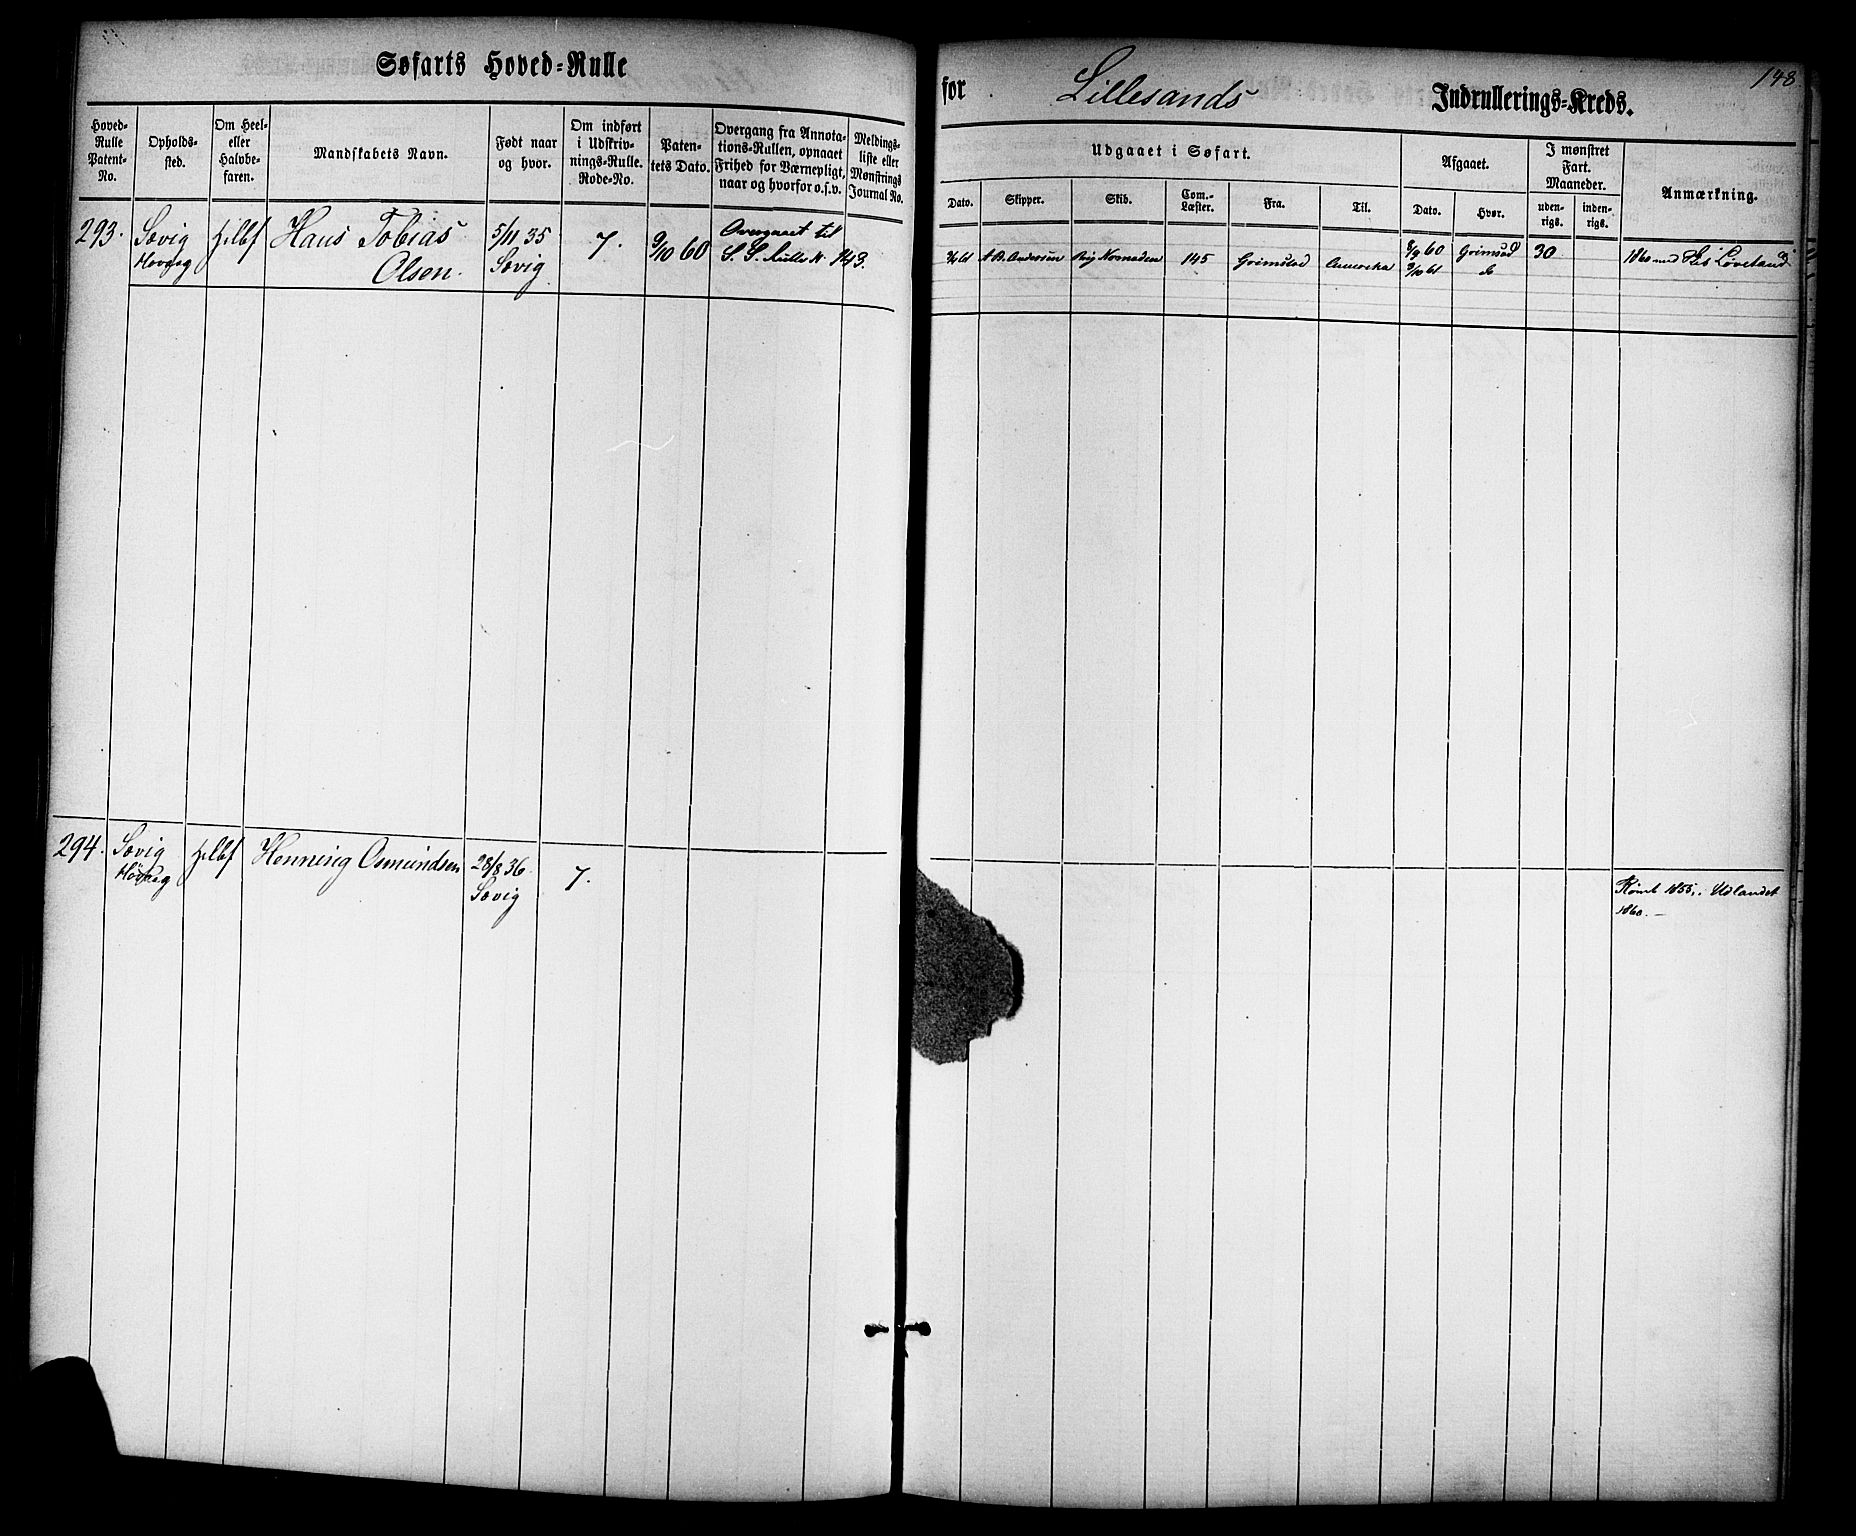 Søfarts Hoved-Rulle
for Lillesands Indrullerings-Kreds.
148
Hoved-Rulle Patent-No.
Opholds-sted.
Om Heel- eller Halvbe-faren.
Mandskabets Navn.
Født naar og hvor.
Om indført i Udskriv-nings-Rulle. Rode-No.
Paten-tets Dato.
Overgang fra Annota-tions-Rullen, opnaaet Frihed for Værnepligt, naar og hvorfor o.s.v.
Meldings-liste eller Mønstrings Journal No.
Udgaaet i Søfart.
Dato.
Skipper.
Skib.
Com.-Læster.
Fra.
Til.
Afgaaet.
Dato.
Hvor.
I mønstret Fart. Maaneder.
uden-rigs.
inden-rigs.
Anmærkning.
293. Sævig hlbf Hans Tobias 5/11 35 7. 9/10 60 Overgaaet til
Høvaag Olsen. Sævig S. S. Rulle N. 143.
8/9 60 Grimstad 30
Andersen Brig 145 Grimstad Amerika 9/10 61 do 1860 med
294. Sævig hlbf Henning Osmundsen 28/8 36. 7.
Høvaag Sævig
1855, Udlandet
1860. —